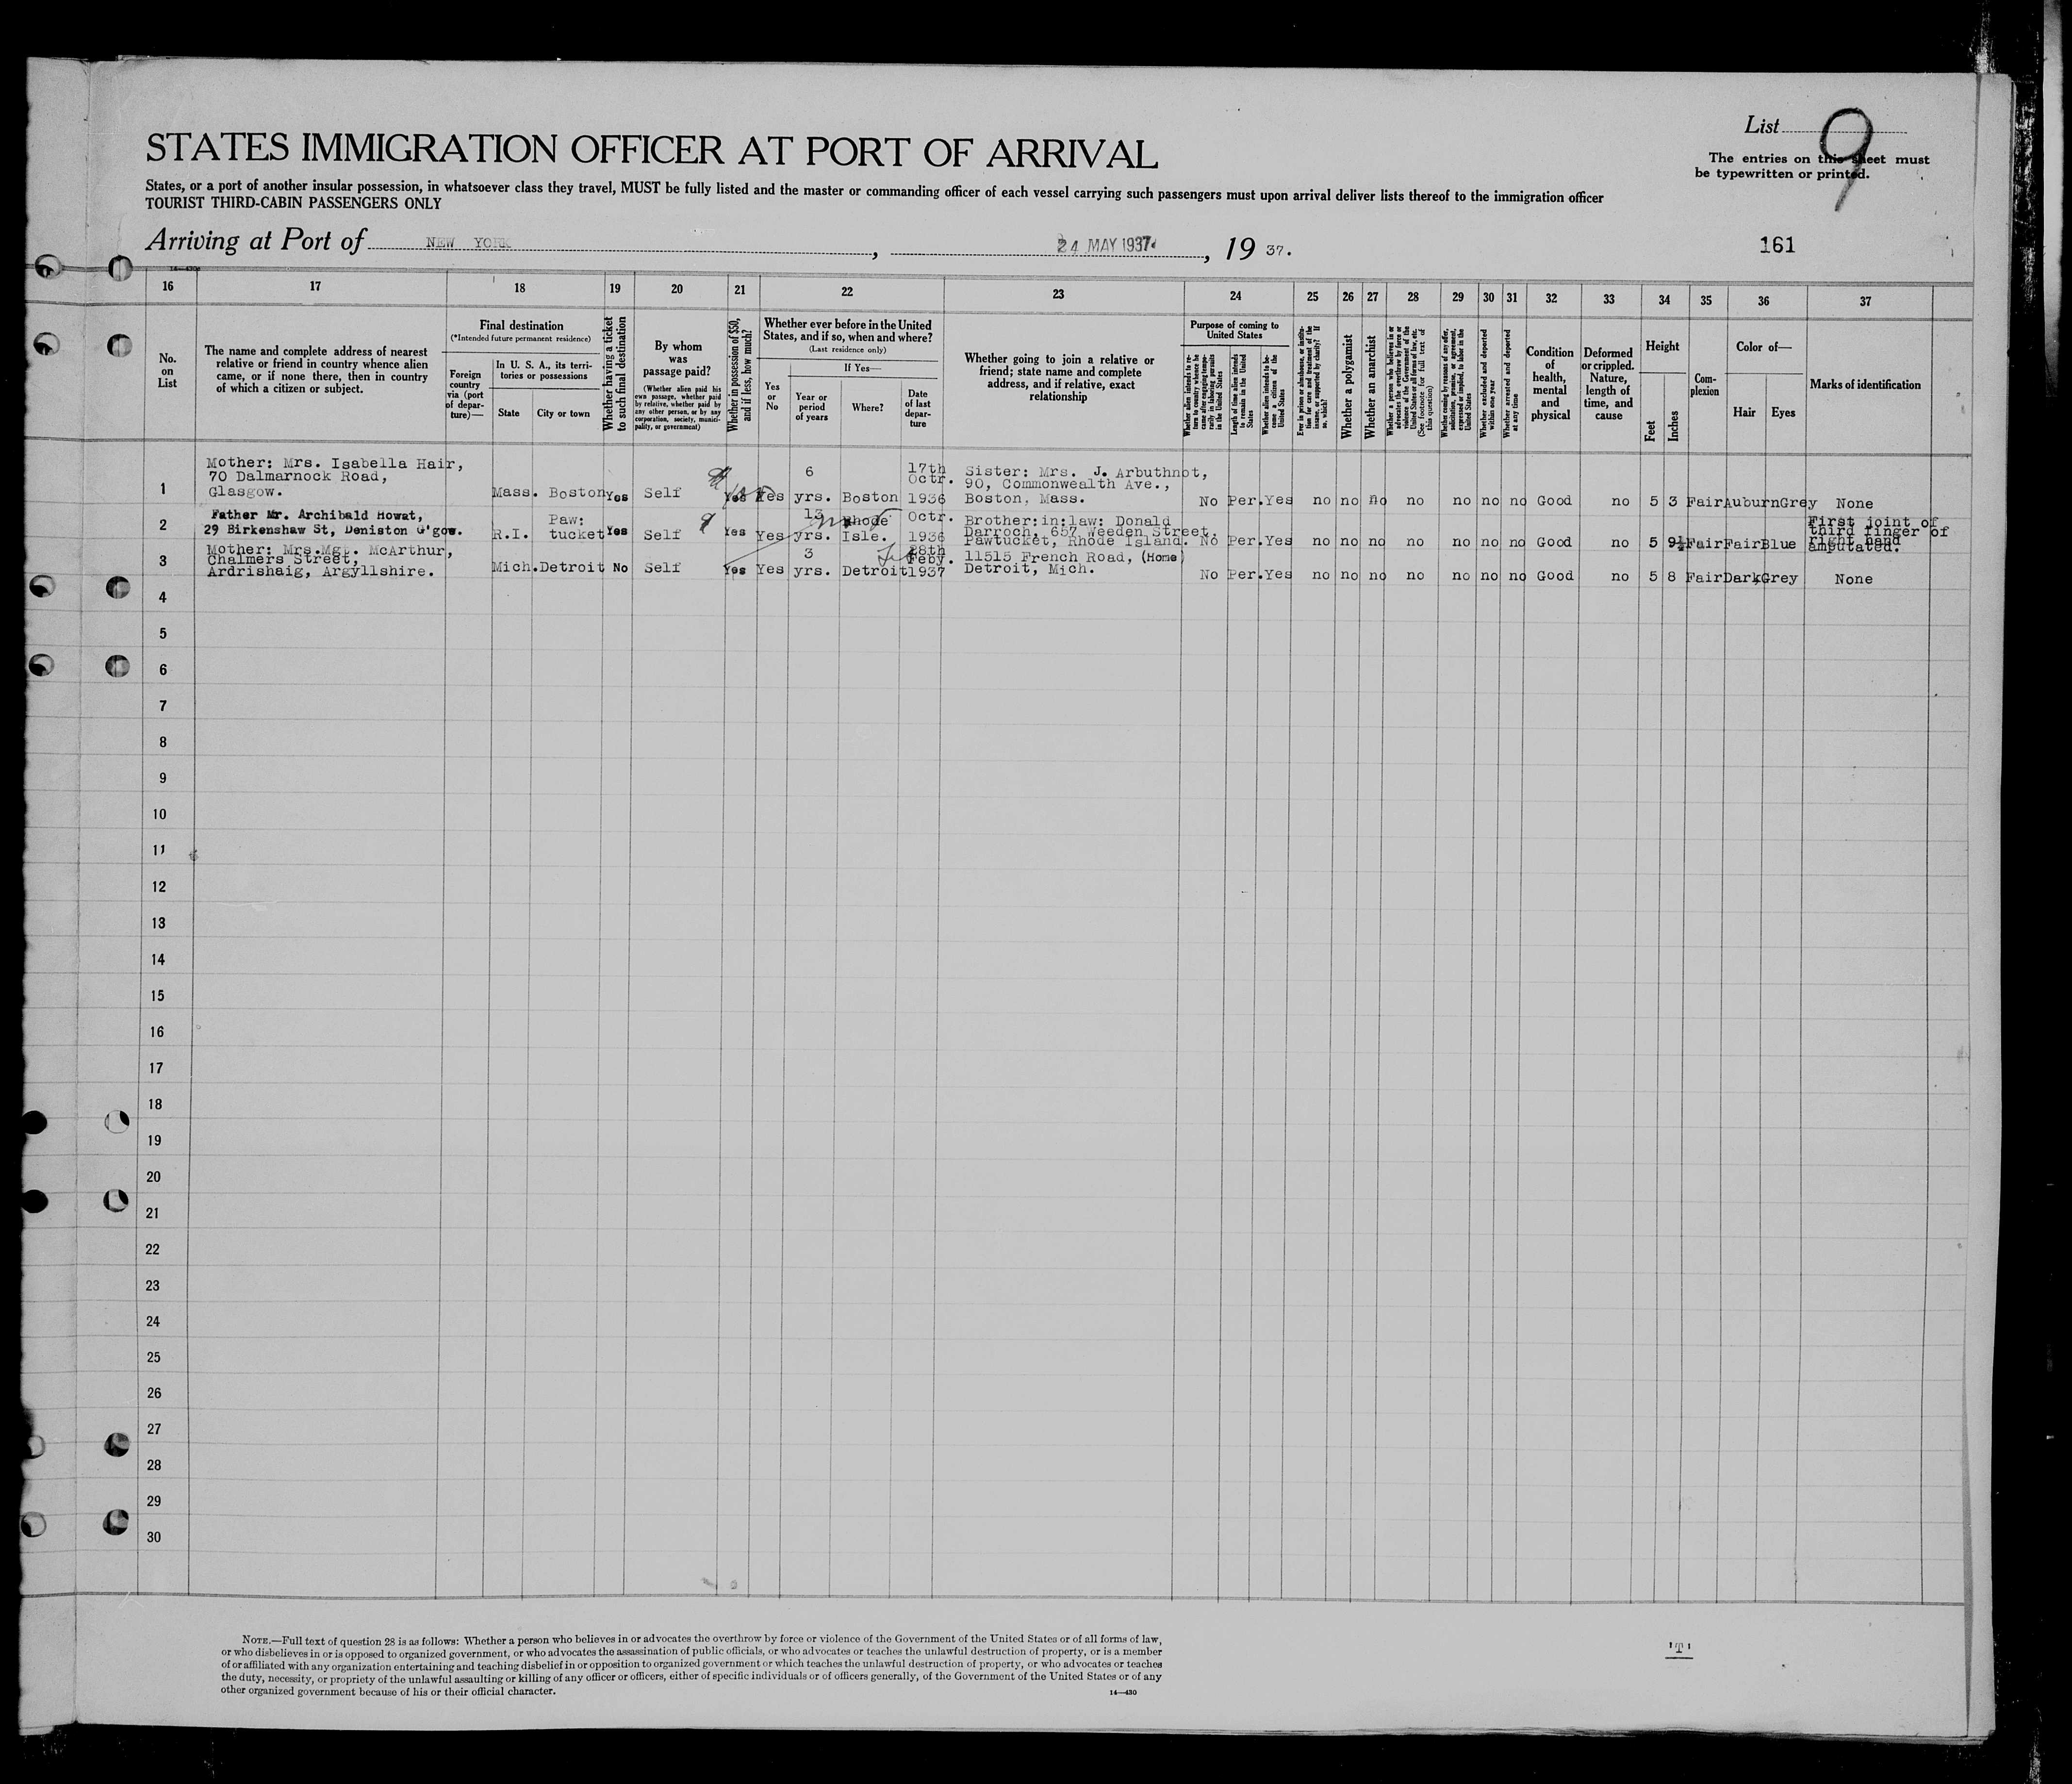 List 9
STATES IMMIGRATION OFFICER AT PORT OF ARRIVAL
The entries on this sheet must
be typewritten or printed.
States, or a port of another insular possession, in whatsoever class they travel, MUST be fully listed and the master or commanding officer of each vessel carrying such passengers must upon arrival deliver lists thereof to the immigration officer
TOURIST THIRD-CABIN PASSENGERS ONLY
Arriving at Port of NEW YORK, 24 MAY 1937, 19 37.
161
14—430
16 17 18 19 20 21 22 23 24 25 26 27 28 29 30 31 32 33 34 35 36 37
No.
on
List
The name and complete address of nearest
relative or friend in country whence alien
came, or if none there, then in country
of which a citizen or subject.
Final destination
(*Intended future permanent residence)
Foreign
country
via (port
of depar-
ture)—
In U. S. A., its terri-
tories or possessions
State
City or town
Whether having a ticket
to such final destination
By whom
was
passage paid?
(Whether alien paid his
own passage, whether paid
by relative, whether paid by
any other person, or by any
corporation, society, munici-
pality, or government)
Whether in possession of $50,
and if less, how much?
Whether ever before in the United
States, and if so, when and where?
(Last residence only)
Yes
or
No
If Yes—
Year or
period
of years
Where?
Date
of last
depar-
ture
Whether going to join a relative or
friend; state name and complete
address, and if relative, exact
relationship
Purpose of coming to
United States
Whether alien intends to re-
turn to country whence he
came after engaging tempo-
rarily in laboring pursuits
in the United States
Length of time alien intends
to remain in the United
States
Whether alien intends to be-
come a citizen of the
United States
Ever in prison or almshouse, or institu-
tion for care and treatment of the
insane, or supported by charity? If
so, which?
Whether a polygamist
Whether an anarchist
Whether a person who believes in or
advocates the overthrow by force or
violence of the Government of the
United States or all forms of law, etc.
(See footnote for full text of
this question)
Whether coming by reason of any offer,
solicitation, promise, or agreement,
expressed or implied, to labor in the
United States
Whether excluded and deported
within one year
Whether arrested and deported
at any time
Condition
of
health,
mental
and
physical
Deformed
or crippled.
Nature,
length of
time, and
cause
Height
Feet
Inches
Com-
plexion
Color of—
Hair
Eyes
Marks of identification
1
Mother: Mrs. Isabella Hair,
70 Dalmarnock Road,
Glasgow.
Mass. Boston Yes Self Yes Yes 6 yrs. Boston 17th Octr. 1936
Sister: Mrs. J. Arbuthnot,
90, Commonwealth Ave.,
Boston, Mass.
No Per. Yes no no no no no no no Good no 5 3 Fair Auburn Grey None
2
Father Mr. Archibald Howat,
29 Birkenshaw St, Deniston G'gow.
R.I. Paw: tucket Yes Self Yes Yes 13 yrs. Rhode Isle. Octr. 1936
Brother:in:law: Donald
Darroch, 657 Weeden Street,
Pawtucket, Rhode Island.
No Per. Yes no no no no no no no Good no 5 9½ Fair Fair Blue
First joint of
third finger of
right hand
amputated.
3
Mother: Mrs.Mgt. McArthur,
Chalmers Street,
Ardrishaig, Argyllshire.
Mich. Detroit No Self Yes Yes 3 yrs. Detroit 28th Feby. 1937
11515 French Road, (Home)
Detroit, Mich.
No Per. Yes no no no no no no no Good no 5 8 Fair Dark Grey None
4
5
6
7
8
9
10
11
12
13
14
15
16
17
18
19
20
21
22
23
24
25
26
27
28
29
30
NOTE.—Full text of question 28 is as follows: Whether a person who believes in or advocates the overthrow by force or violence of the Government of the United States or of all forms of law,
or who disbelieves in or is opposed to organized government, or who advocates the assassination of public officials, or who advocates or teaches the unlawful destruction of property, or is a member
of or affiliated with any organization entertaining and teaching disbelief in or opposition to organized government or which teaches the unlawful destruction of property, or who advocates or teaches
the duty, necessity, or propriety of the unlawful assaulting or killing of any officer or officers, either of specific individuals or of officers generally, of the Government of the United States or of any
other organized government because of his or their official character.
14—430
'T'